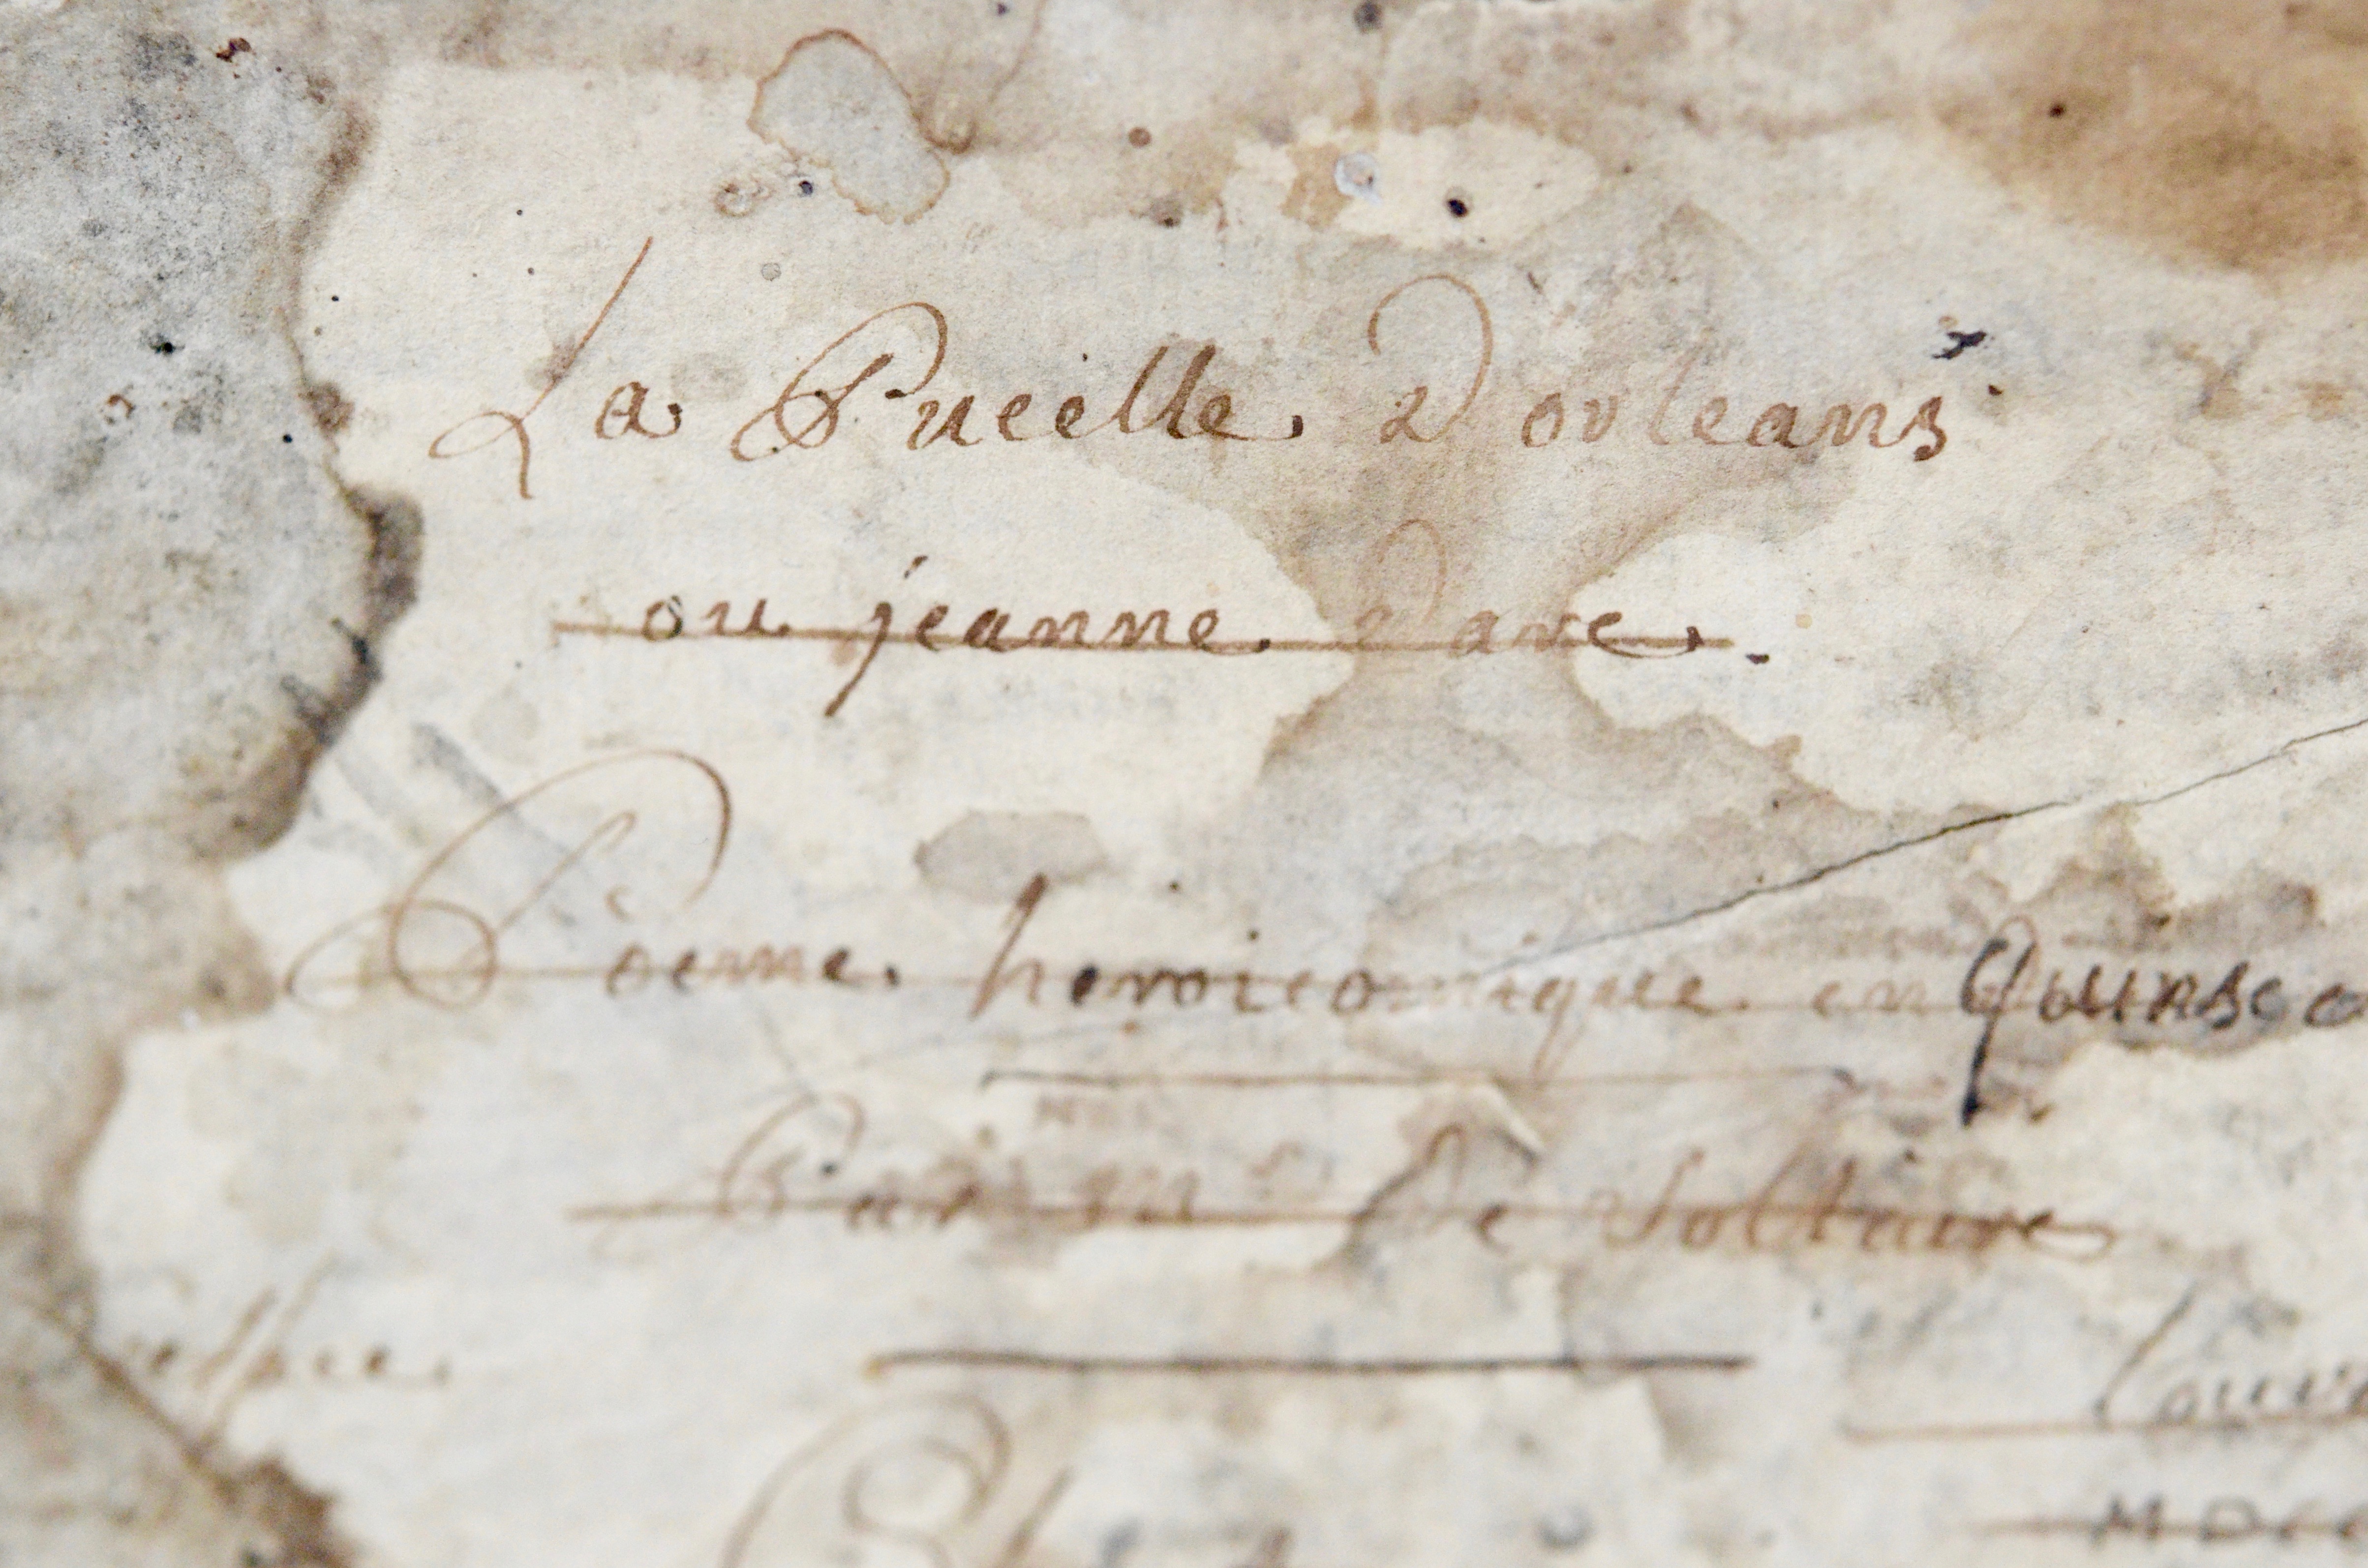 La Pucelle D orleans
ou jeanne d arc.
Poëme heroicomique en Quinse
Par Mr De Voltaire
Louv
MDCC